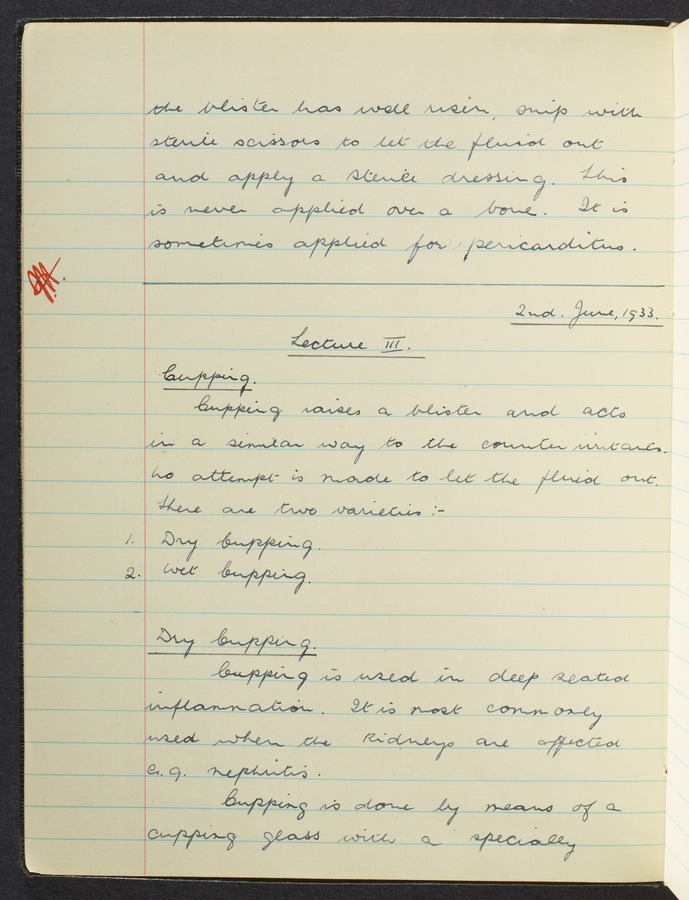 the blister has well risen, snip with
sterile scissors to let the fluid out
and apply a sterile dressing. This
is never applied over a bone. It is
sometimes applied for pericarditus.
2nd. June, 1933.
Lecture III.
Cupping.
Cupping raises a blister and acts
in a similar way to the counter irritants.
No attempt is made to let the fluid out.
There are two varieties :-
1. Dry Cupping.
2. Wet Cupping.
Dry Cupping.
Cupping is used in deep seated
inflammation. It is most commonly
used when the Kidneys are affected
e.g. nephritis.
Cupping is done by means of a
cupping glass with a specially